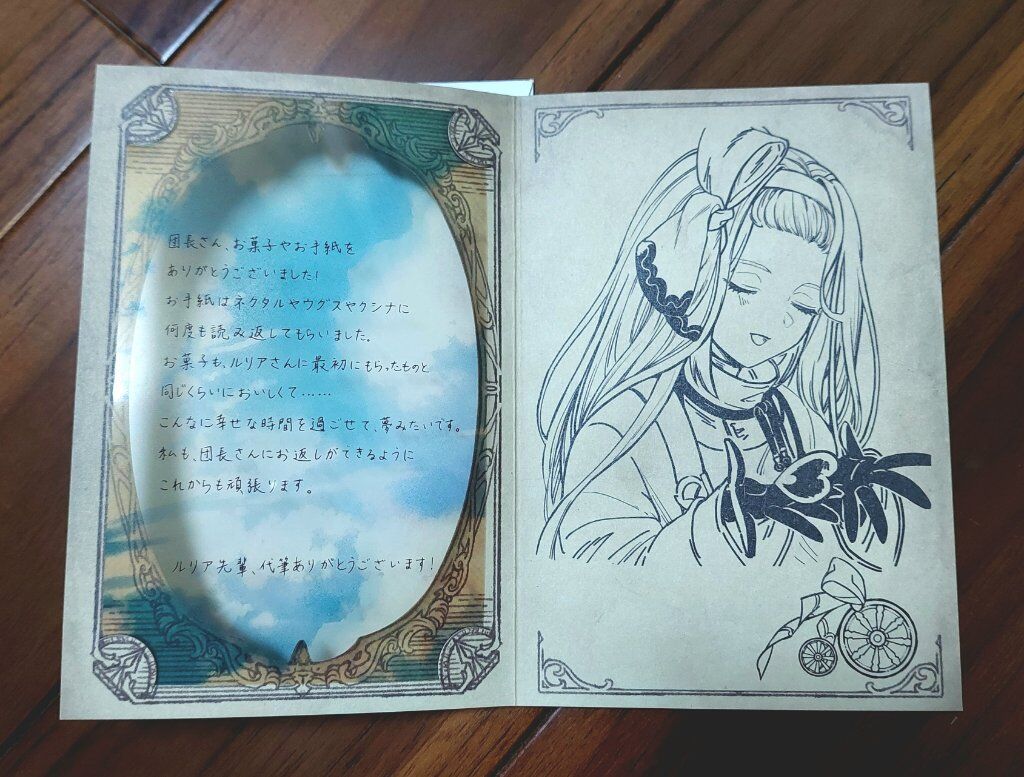 団長さん、お菓子やお手紙を
ありがとうございました!
お手紙はネクタルやウグスやクシナに
何度も読み返してもらいました。
お菓子も、ルリアさんに最初にもらったものと
同じくらいにおいしくて……
こんなに幸せな時間を過ごせて、夢みたいです。
私も、団長さんにお返しができるように
これからも頑張ります。
ルリア先輩、代筆ありがとうございます!